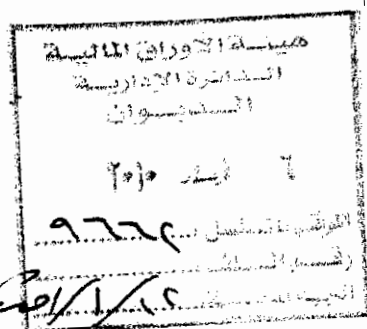 هيئة الأوراق المالية
الدائرة الإدارية
الديوان
٦ أيار ٢٠١٠
الرقم المتسلسل ٩٦٦٢
رقم الملف
الجهة المختصة